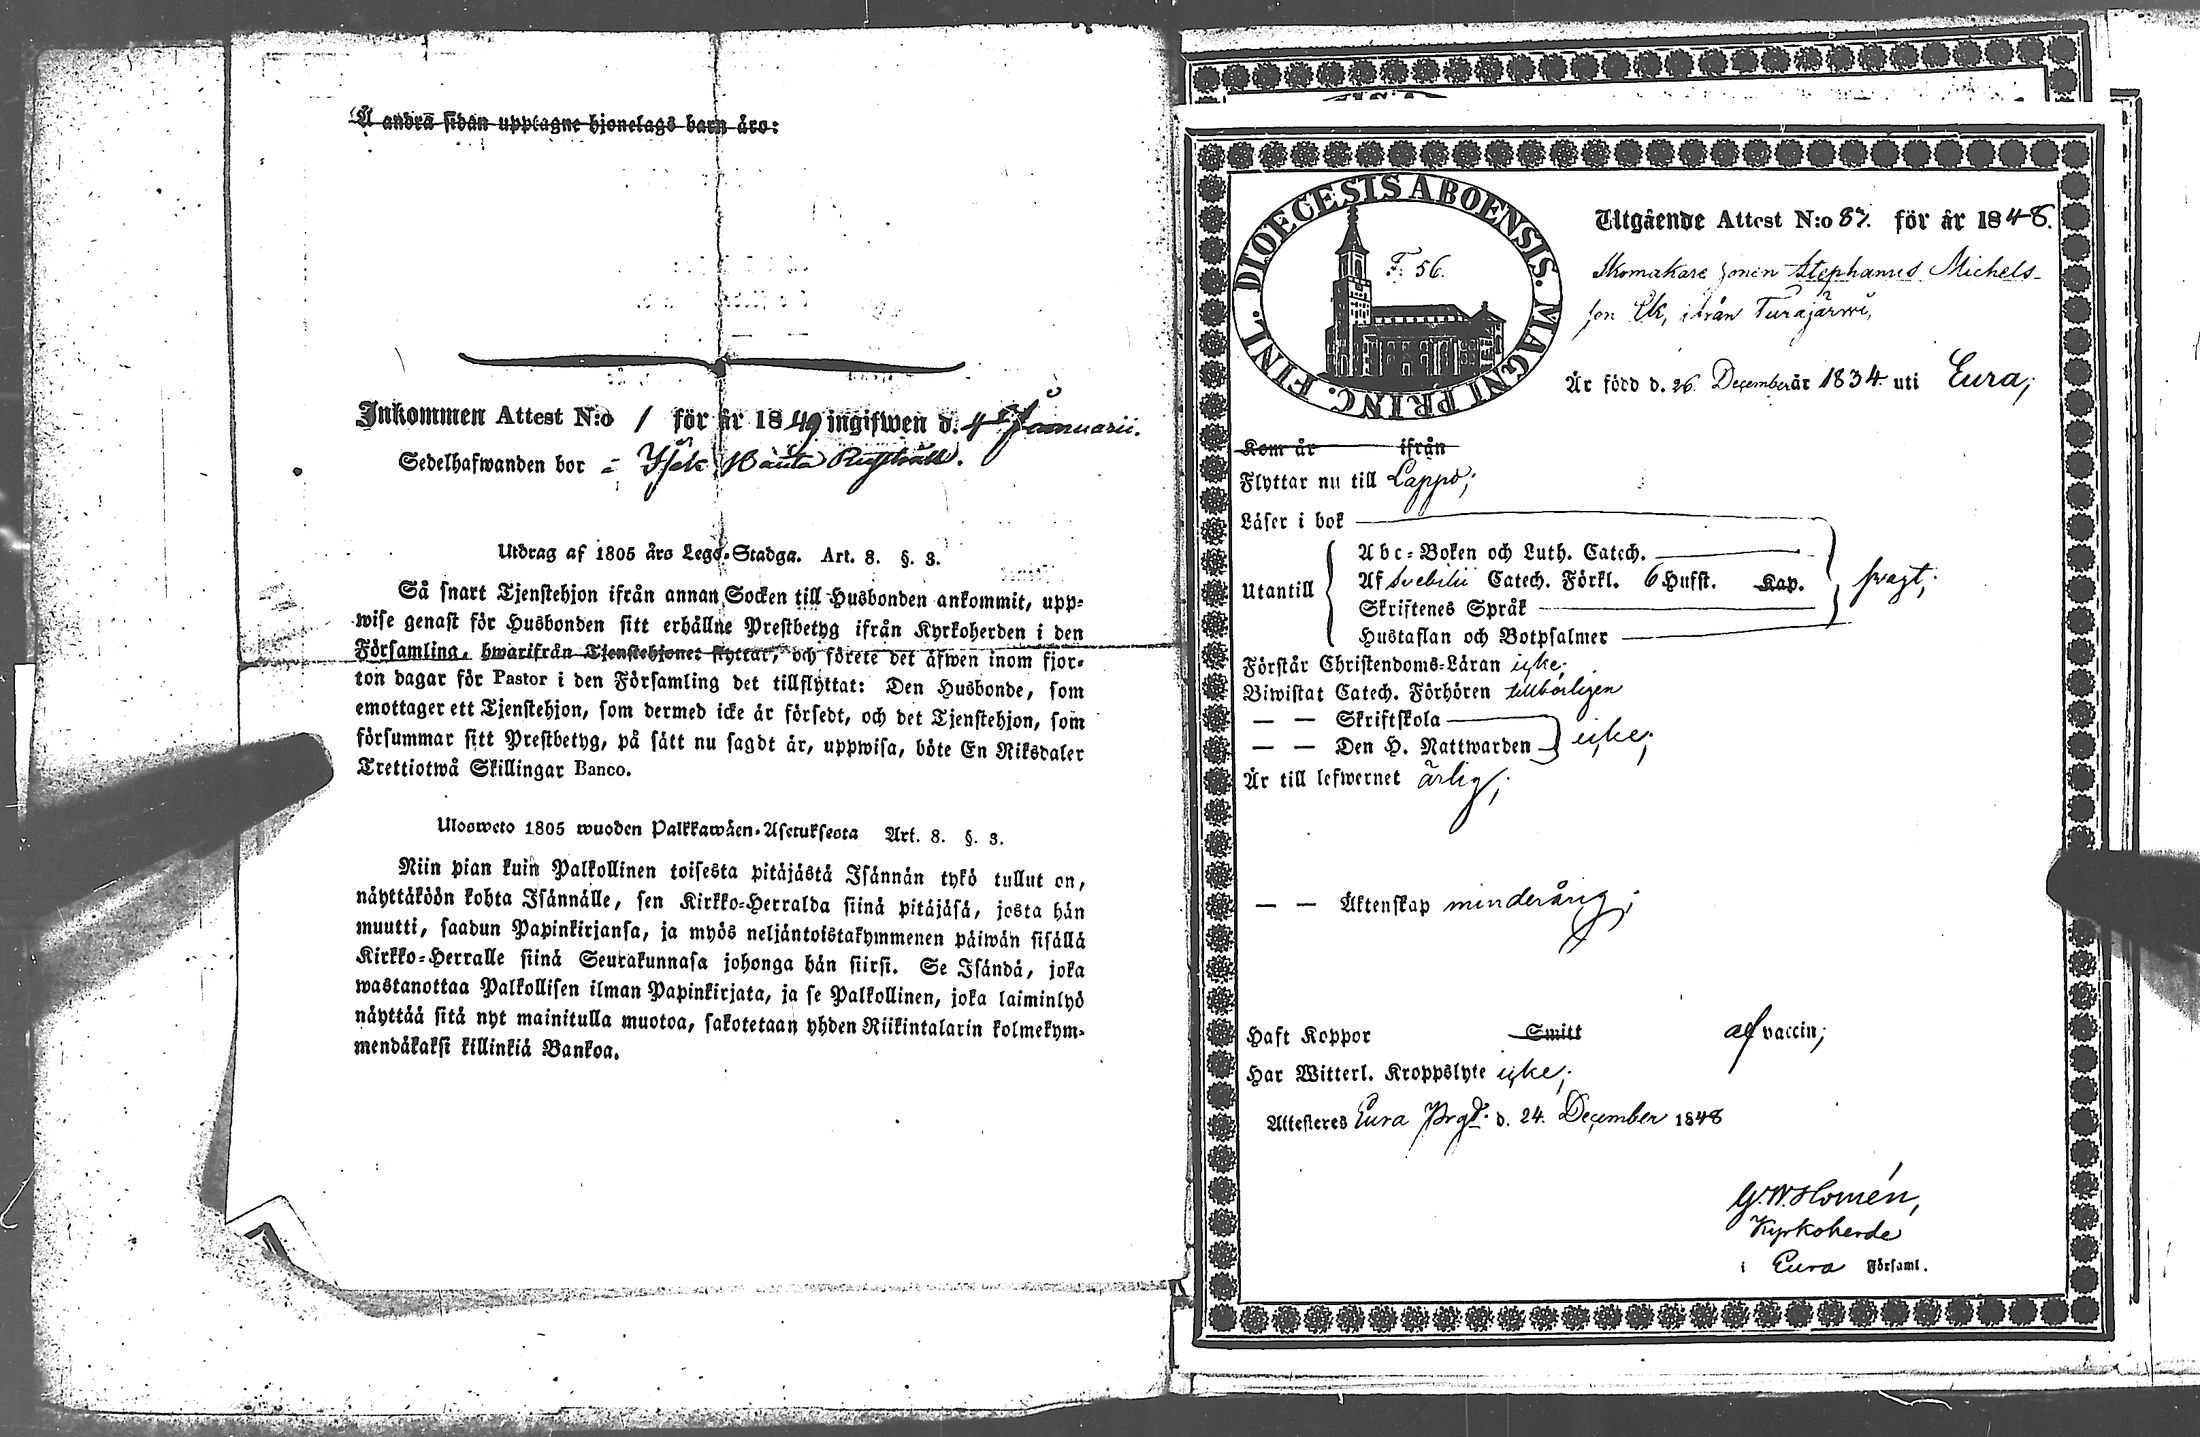 Å andra sidan upptagne hjonelags barn äro:
Inkommen Attest N:o 1 för år 1849 ingifwen d. 4 Januarii.
Sedelhafwanden bor i
Utdrag af 1805 års Lego-Stadga. Art. 8. §. 3.
Så snart Tjenstehjon ifrån annan Socken till Husbonden ankommit, upp-
wise genast för Husbonden sitt erhållne Prestbetyg ifrån Kyrkoherden i den
Församling, hwarifrån Tjenstehjonet flyttat, och förete det äfwen inom fjor-
ton dagar för Pastor i den Församling det tillflyttat: Den Husbonde, som
emottager ett Tjenstehjon, som dermed icke är försedt, och det Tjenstehjon, som
försummar sitt Prestbetyg, på sätt nu sagdt är, uppwisa, böte En Riksdaler
Trettiotwå Skillingar Banco.
Ulosweto 1805 wuoden Palkkawäen-Asetuksesta Art. 8. §. 3.
Niin pian kuin Palkollinen toisesta pitäjästä Isännän tykö tullut on,
näyttäköön kohta Isännälle, sen Kirkko-Herralda siinä pitäjäsä, josta hän
muutti, saadun Papinkirjansa, ja myös neljäntoistakymmenen päiwän sisällä
Kirkko-Herralle siinä Seurakunnasa johonga hän siirsi. Se Isändä, joka
wastanottaa Palkollisen ilman Papinkirjata, ja se Palkollinen, joka laiminlyö
näyttää sitä nyt mainitulla muotoa, sakotetaan yhden Riikintalarin kolmekym-
mendäkaksi killinkiä Bankoa.
DIOECESIS ABOENSIS. MAGNI PRINC. FINL.
F. 56.
Utgående Attest N:o 87. för år 1848.
Skomakare sonen Stephanus Michels-
son Ek, ifrån Turajärwi,
Är född d. 26. December år 1834 uti Eura;
Kom år ifrån
Flyttar nu till Lappo;
Läser i bok
Abc-Boken och Luth. Catech.
Utantill Af Svebilii Catech. Förkl. 6 Hufst. Kap. svagt;
Skriftenes Språk
Hustaflan och Botpsalmer
Förstår Christendoms-Läran icke;
Biwistat Catech. Förhören tillbörligen
— — Skriftskola
— — Den H. Nattwarden icke;
Är till lefwernet ärlig;
— — Äktenskap minderårig;
Haft Koppor Smitt af vaccin;
Har Witterl. Kroppslyte icke;
Attesteres Eura Prgd. d. 24. December 1848
G. W. Homén,
Kyrkoherde
i Eura Församl.